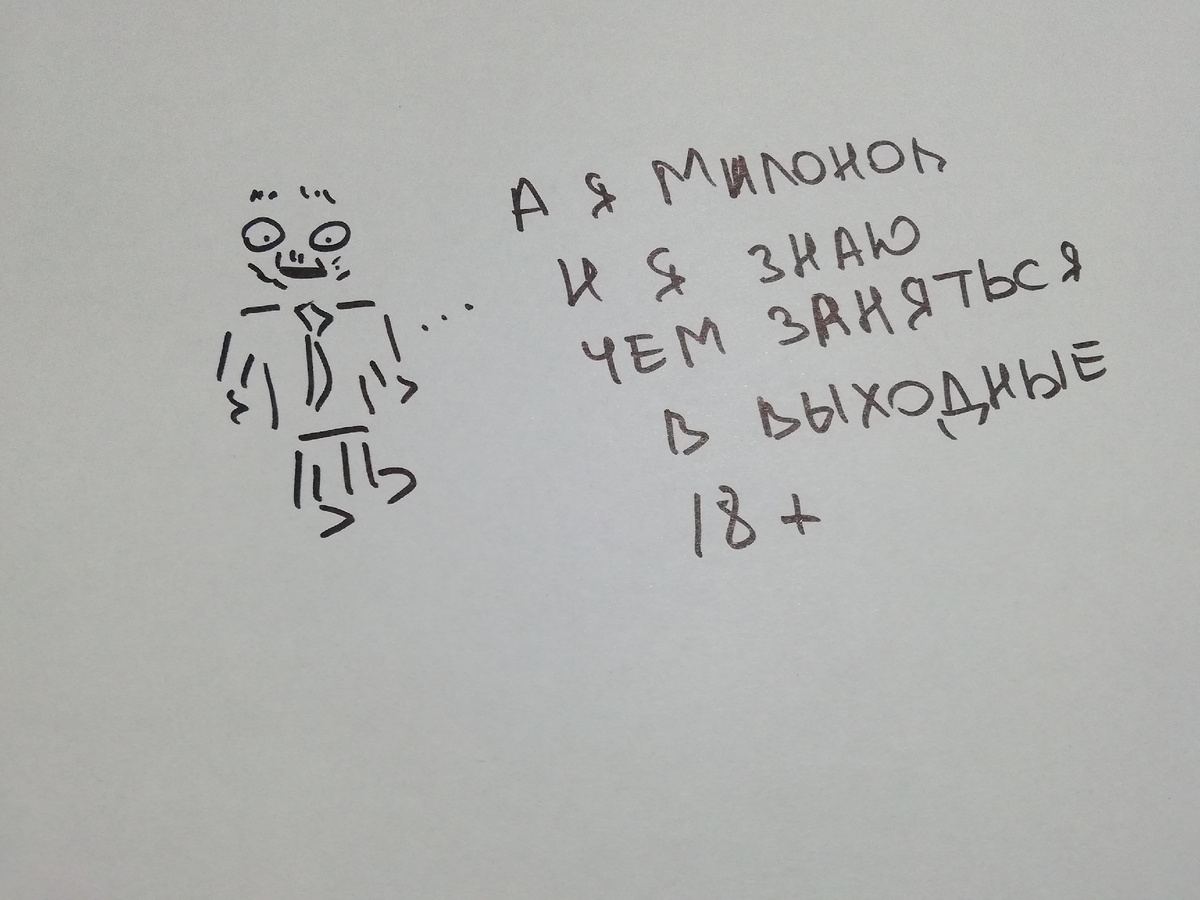 А Я МИЛОНОВ
И Я ЗНАЮ
ЧЕМ ЗАНЯТЬСЯ
В ВЫХОДНЫЕ
18+